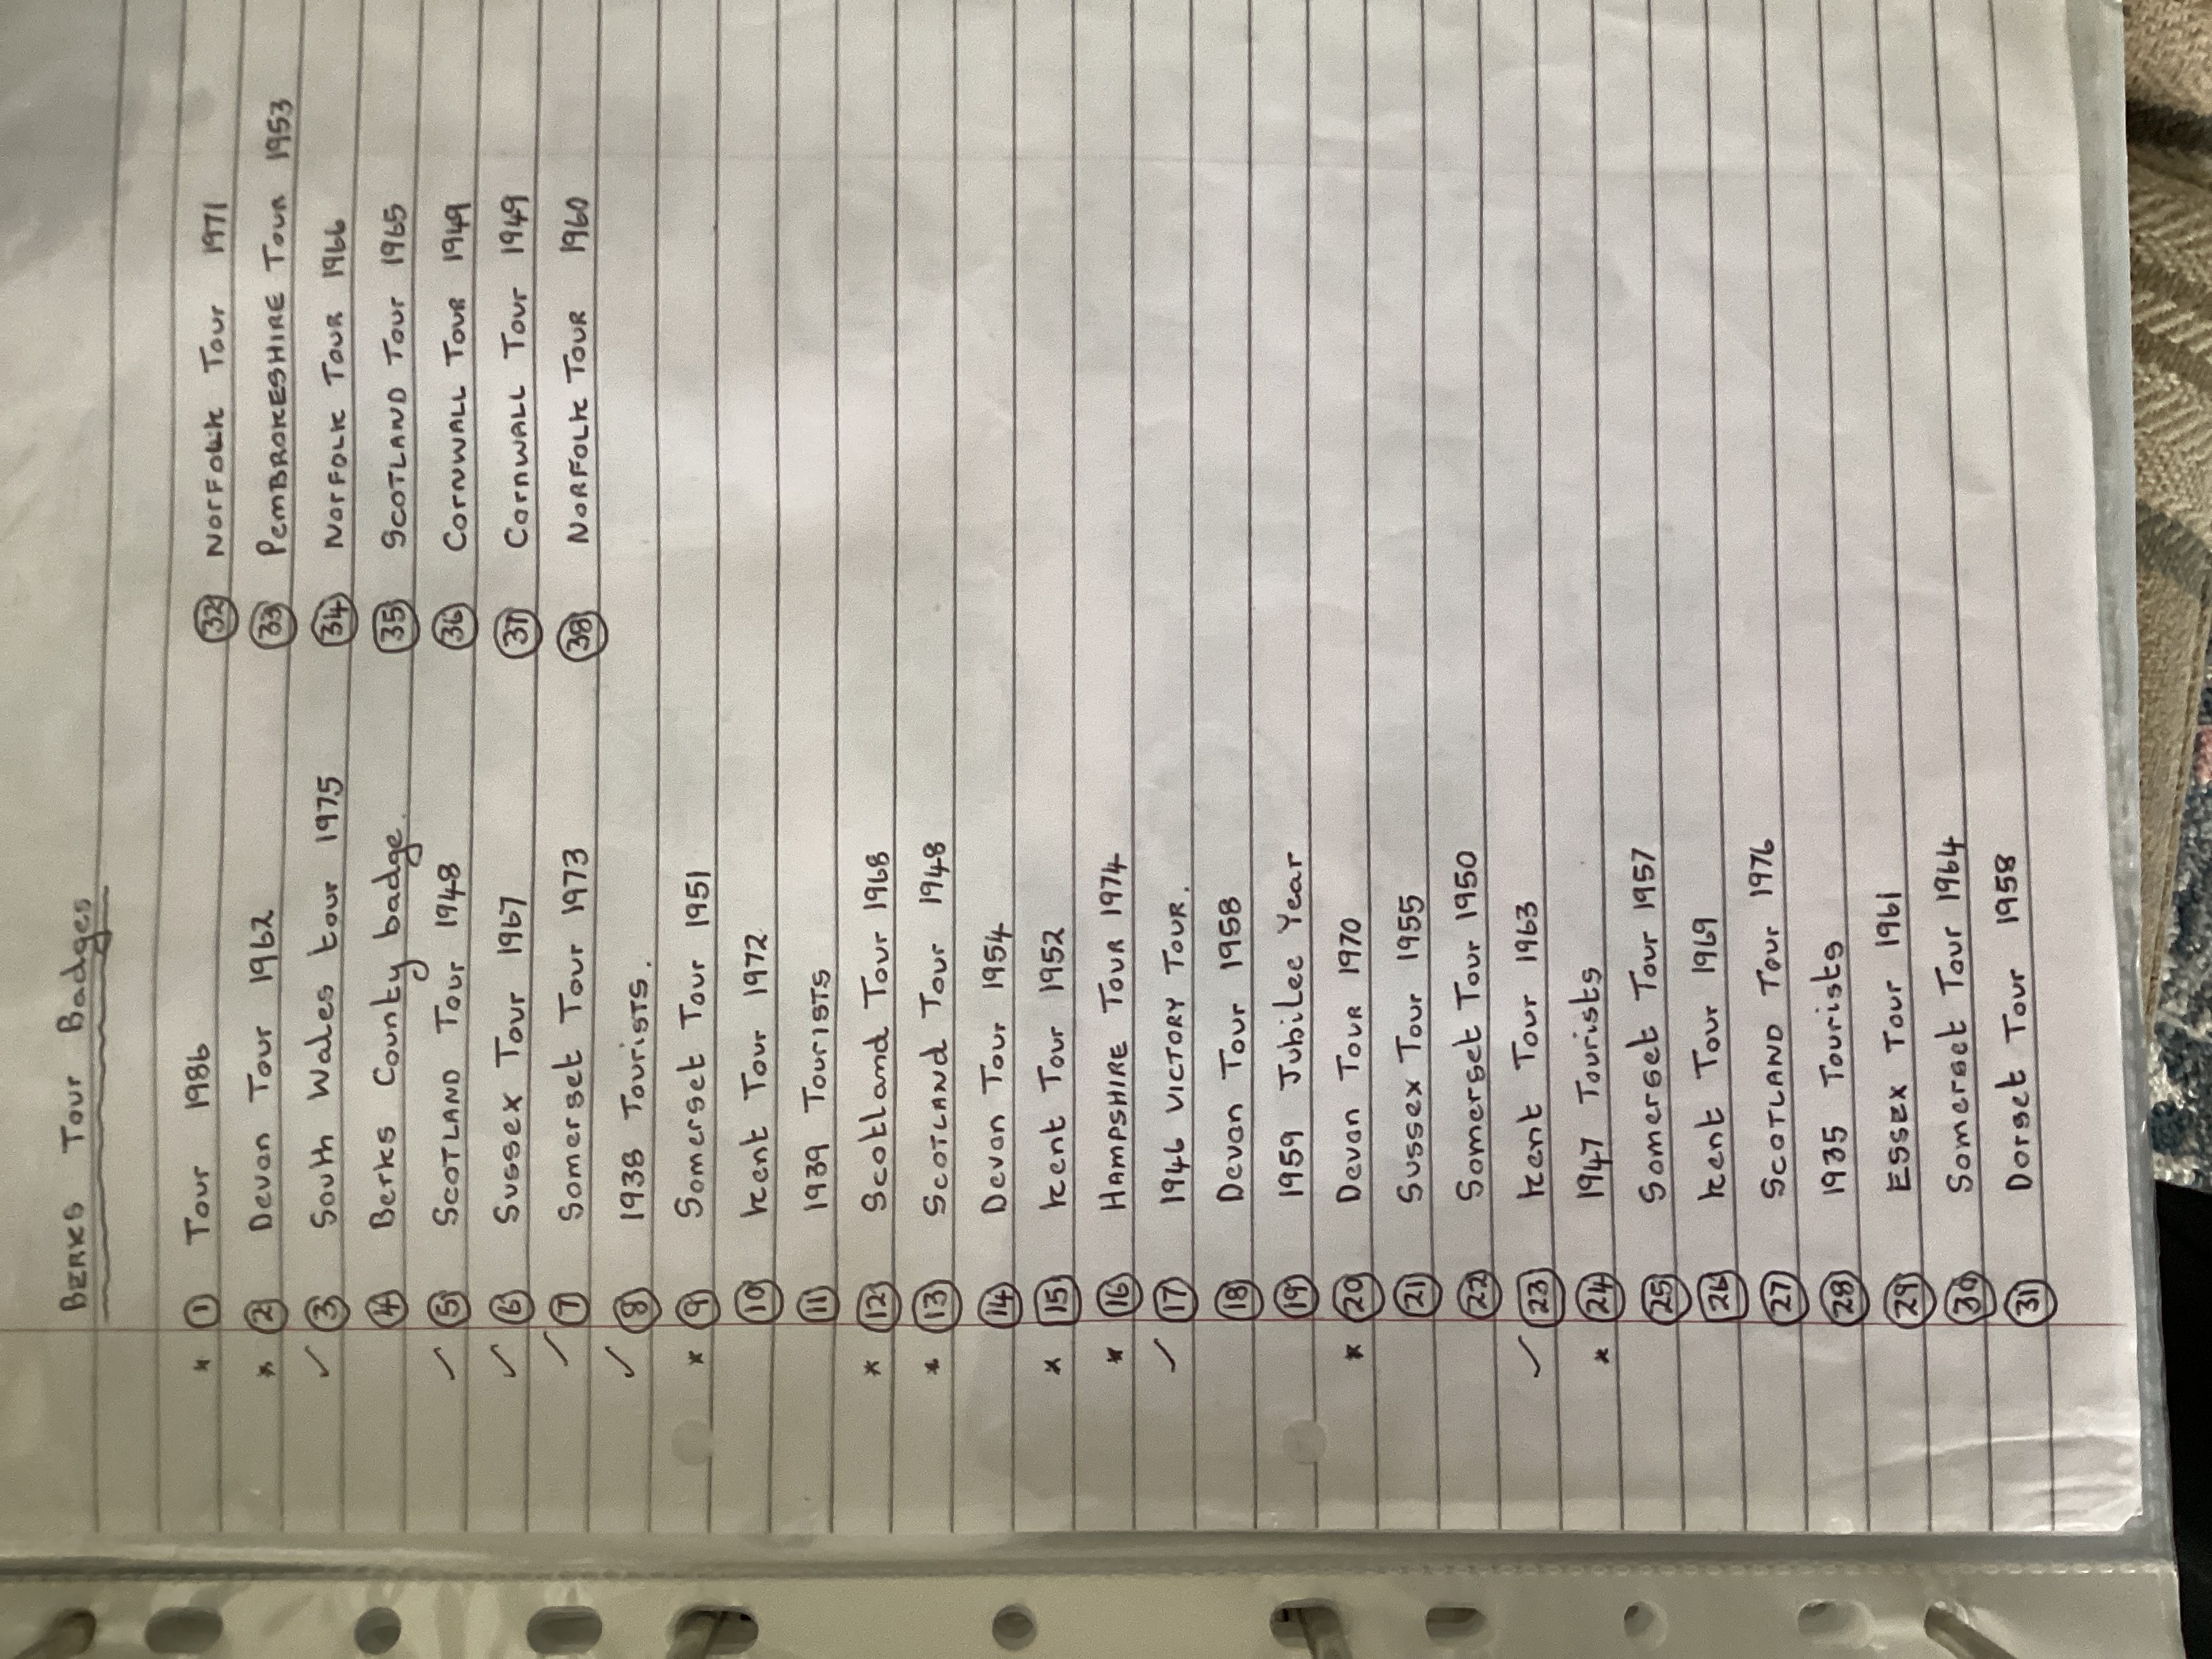 BERKS Tour Badges
* ① Tour 1986
* ② Devon Tour 1962
✓ ③ South Wales tour 1975
④ Berks County badge.
✓ ⑤ SCOTLAND Tour 1948
✓ ⑥ Sussex Tour 1967
✓ ⑦ Somerset Tour 1973
✓ ⑧ 1938 Tourists.
* ⑨ Somerset Tour 1951
⑩ Kent Tour 1972
⑪ 1939 Tourists
* ⑫ Scotland Tour 1968
* ⑬ SCOTLAND Tour 1948
⑭ Devon Tour 1954
* ⑮ Kent Tour 1952
* ⑯ HAMPSHIRE TOUR 1974
✓ ⑰ 1946 VICTORY TOUR.
⑱ Devon Tour 1958
⑲ 1959 JubiLee Year
* ⑳ Devon TOUR 1970
㉑ Sussex Tour 1955
㉒ Somerset Tour 1950
✓ ㉓ Kent Tour 1963
* ㉔ 1947 Tourists
㉕ Somerset Tour 1957
㉖ Kent Tour 1969
㉗ SCOTLAND Tour 1976
㉘ 1935 Tourists
㉙ ESSEX Tour 1961
㉚ Somerset Tour 1964
㉛ Dorset Tour 1958
㉜ NORFOLK Tour 1971
㉝ PEMBROKESHIRE TOUR 1953
㉞ NORFOLK TOUR 1966
㉟ SCOTLAND Tour 1965
㊱ CORNWALL TOUR 1949
㊲ CORNWALL Tour 1949
㊳ NORFOLK TOUR 1960